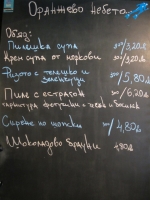 Оранжево небето
Обяд:
Пилешка супа 300/3,20лв
Крем супа от моркови 300/3,20лв
Ризото с телешко и зеленчуци 300/5,80лв
Пиле с естрагон 300/6,20лв
гарнитура картофки с чеснов и босилек
Сирене по шопски 300/4,80лв
Шоколадово брауни 4,80лв